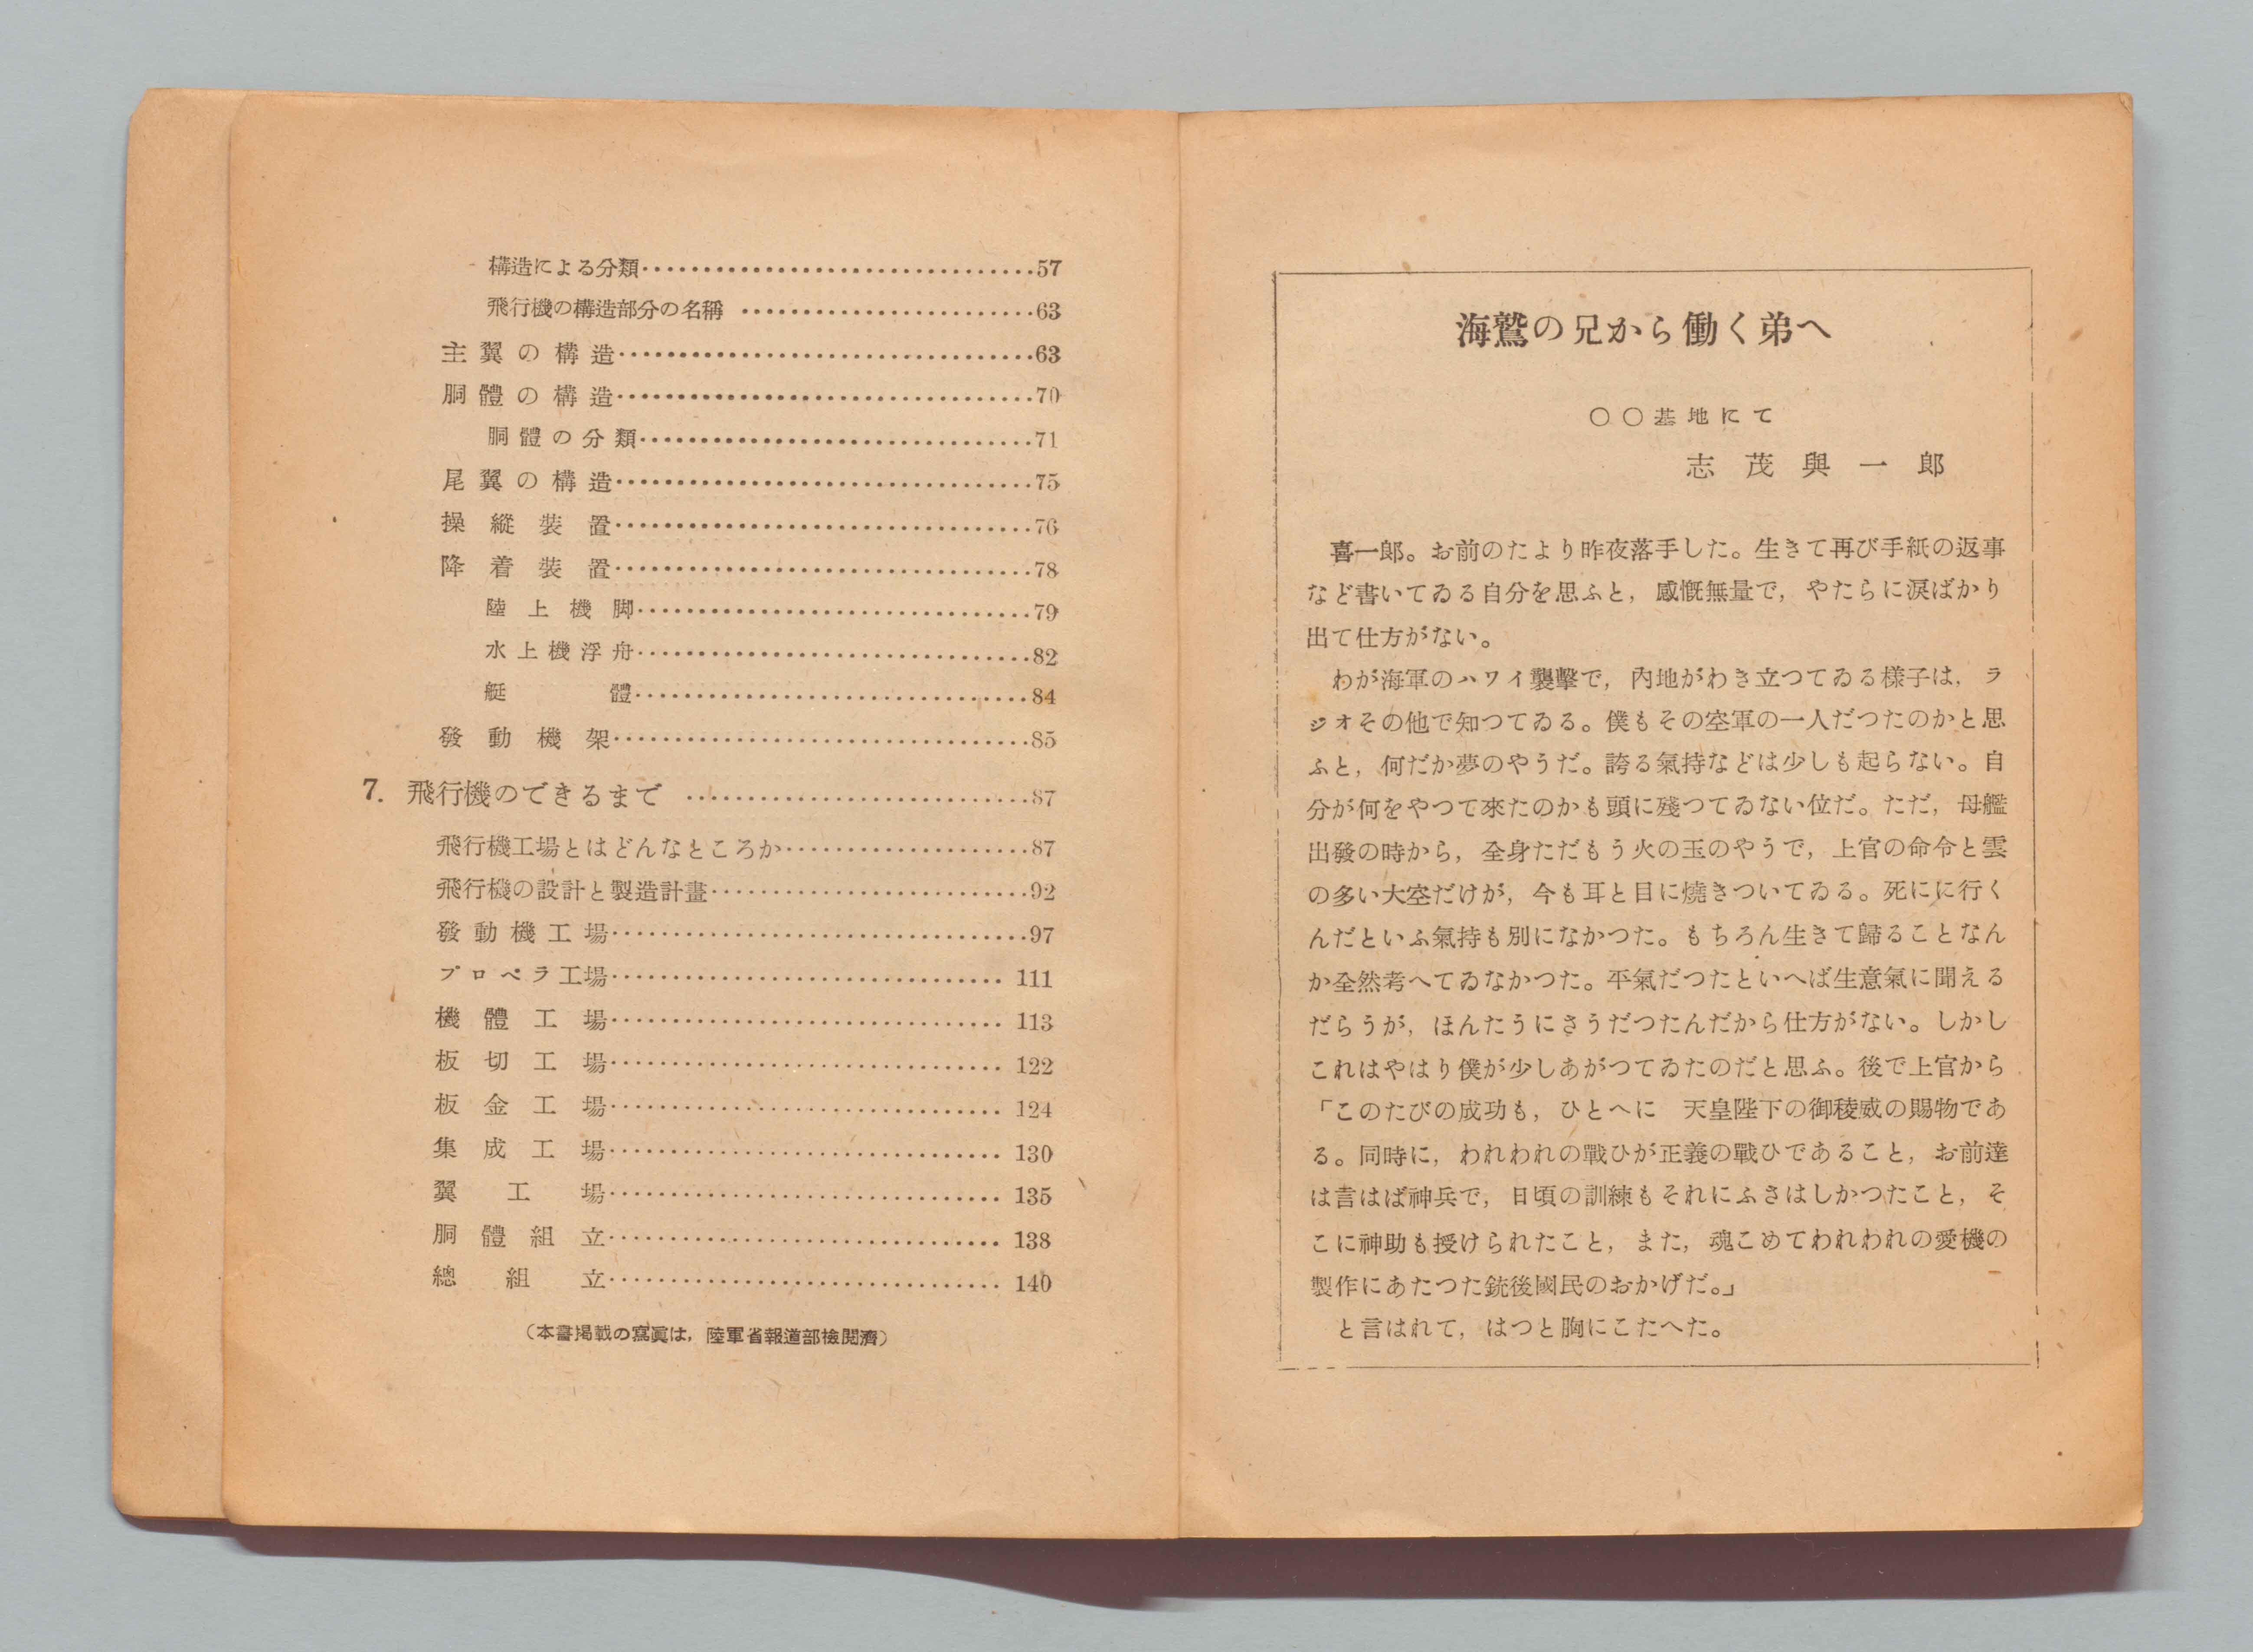 構造による分類………………………………57
飛行機の構造部分の名稱 ………………………63
主翼の構造…………………………………63
胴體の構造…………………………………70
胴體の分類………………………………71
尾翼の構造…………………………………75
操縱裝置…………………………………76
降着裝置…………………………………78
陸上機脚………………………………79
水上機浮舟………………………………82
艇體………………………………84
發動機架…………………………………85
7. 飛行機のできるまで …………………………87
飛行機工場とはどんなところか……………………87
飛行機の設計と製造計畫…………………………92
發動機工場…………………………………97
プロペラ工場……………………………… 111
機體工場……………………………… 113
板切工場……………………………… 122
板金工場……………………………… 124
集成工場……………………………… 130
翼工場……………………………… 135
胴體組立……………………………… 138
總組立……………………………… 140
（本書掲載の寫眞は，陸軍省報道部檢閲濟）
海鷲の兄から働く弟へ
〇〇基地にて
志茂與一郎
喜一郎。お前のたより昨夜落手した。生きて再び手紙の返事
など書いてゐる自分を思ふと，感慨無量で，やたらに涙ばかり
出て仕方がない。
わが海軍のハワイ襲擊で，內地がわき立つてゐる樣子は，ラ
ジオその他で知つてゐる。僕もその空軍の一人だつたのかと思
ふと，何だか夢のやうだ。誇る氣持などは少しも起らない。自
分が何をやつて來たのかも頭に殘つてゐない位だ。ただ，母艦
出發の時から，全身ただもう火の玉のやうで，上官の命令と雲
の多い大空だけが，今も耳と目に燒きついてゐる。死にに行く
んだといふ氣持も別になかつた。もちろん生きて歸ることなん
か全然考へてゐなかつた。平氣だつたといへば生意氣に聞える
だらうが，ほんたうにさうだつたんだから仕方がない。しかし
これはやはり僕が少しあがつてゐたのだと思ふ。後で上官から
「このたびの成功も，ひとへに　天皇陛下の御稜威の賜物であ
る。同時に，われわれの戰ひが正義の戰ひであること，お前達
は言はば神兵で，日頃の訓練もそれにふさはしかつたこと，そ
こに神助も授けられたこと，また，魂こめてわれわれの愛機の
製作にあたつた銃後國民のおかげだ。」
と言はれて，はつと胸にこたへた。